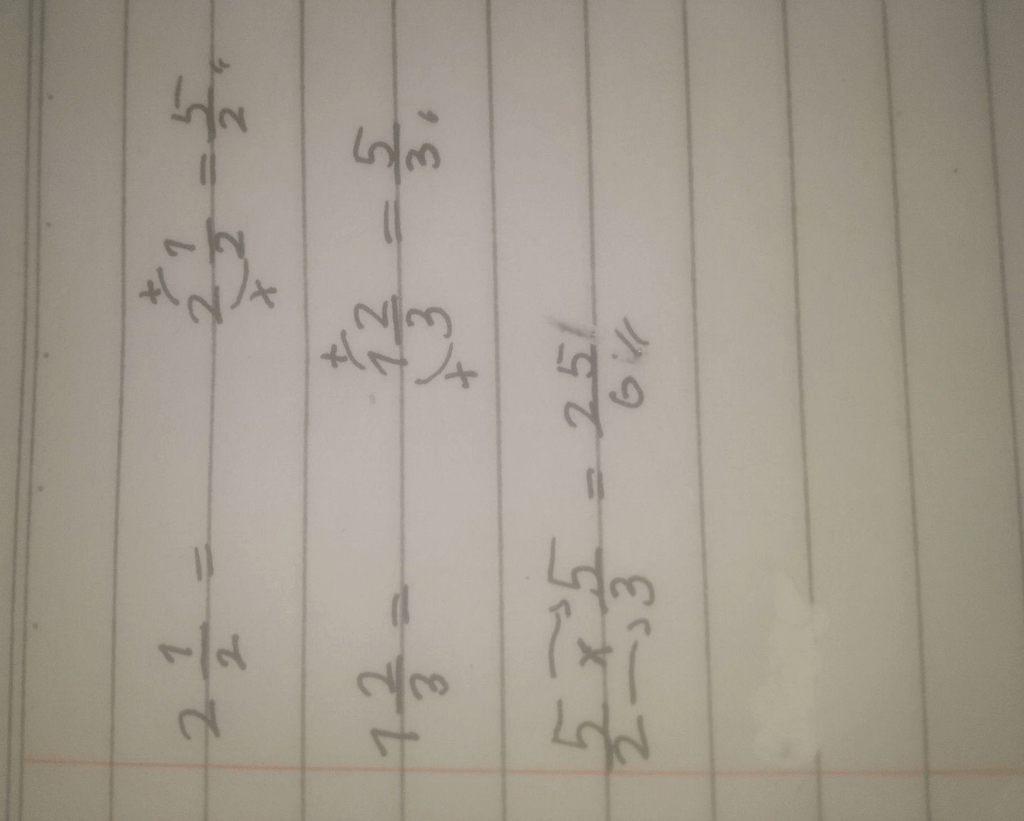 2 1/2 = 2 1/2 = 5/2
+
x
1 2/3 = 1 2/3 = 5/3
+
+
5/2 x 5/3 = 25/6